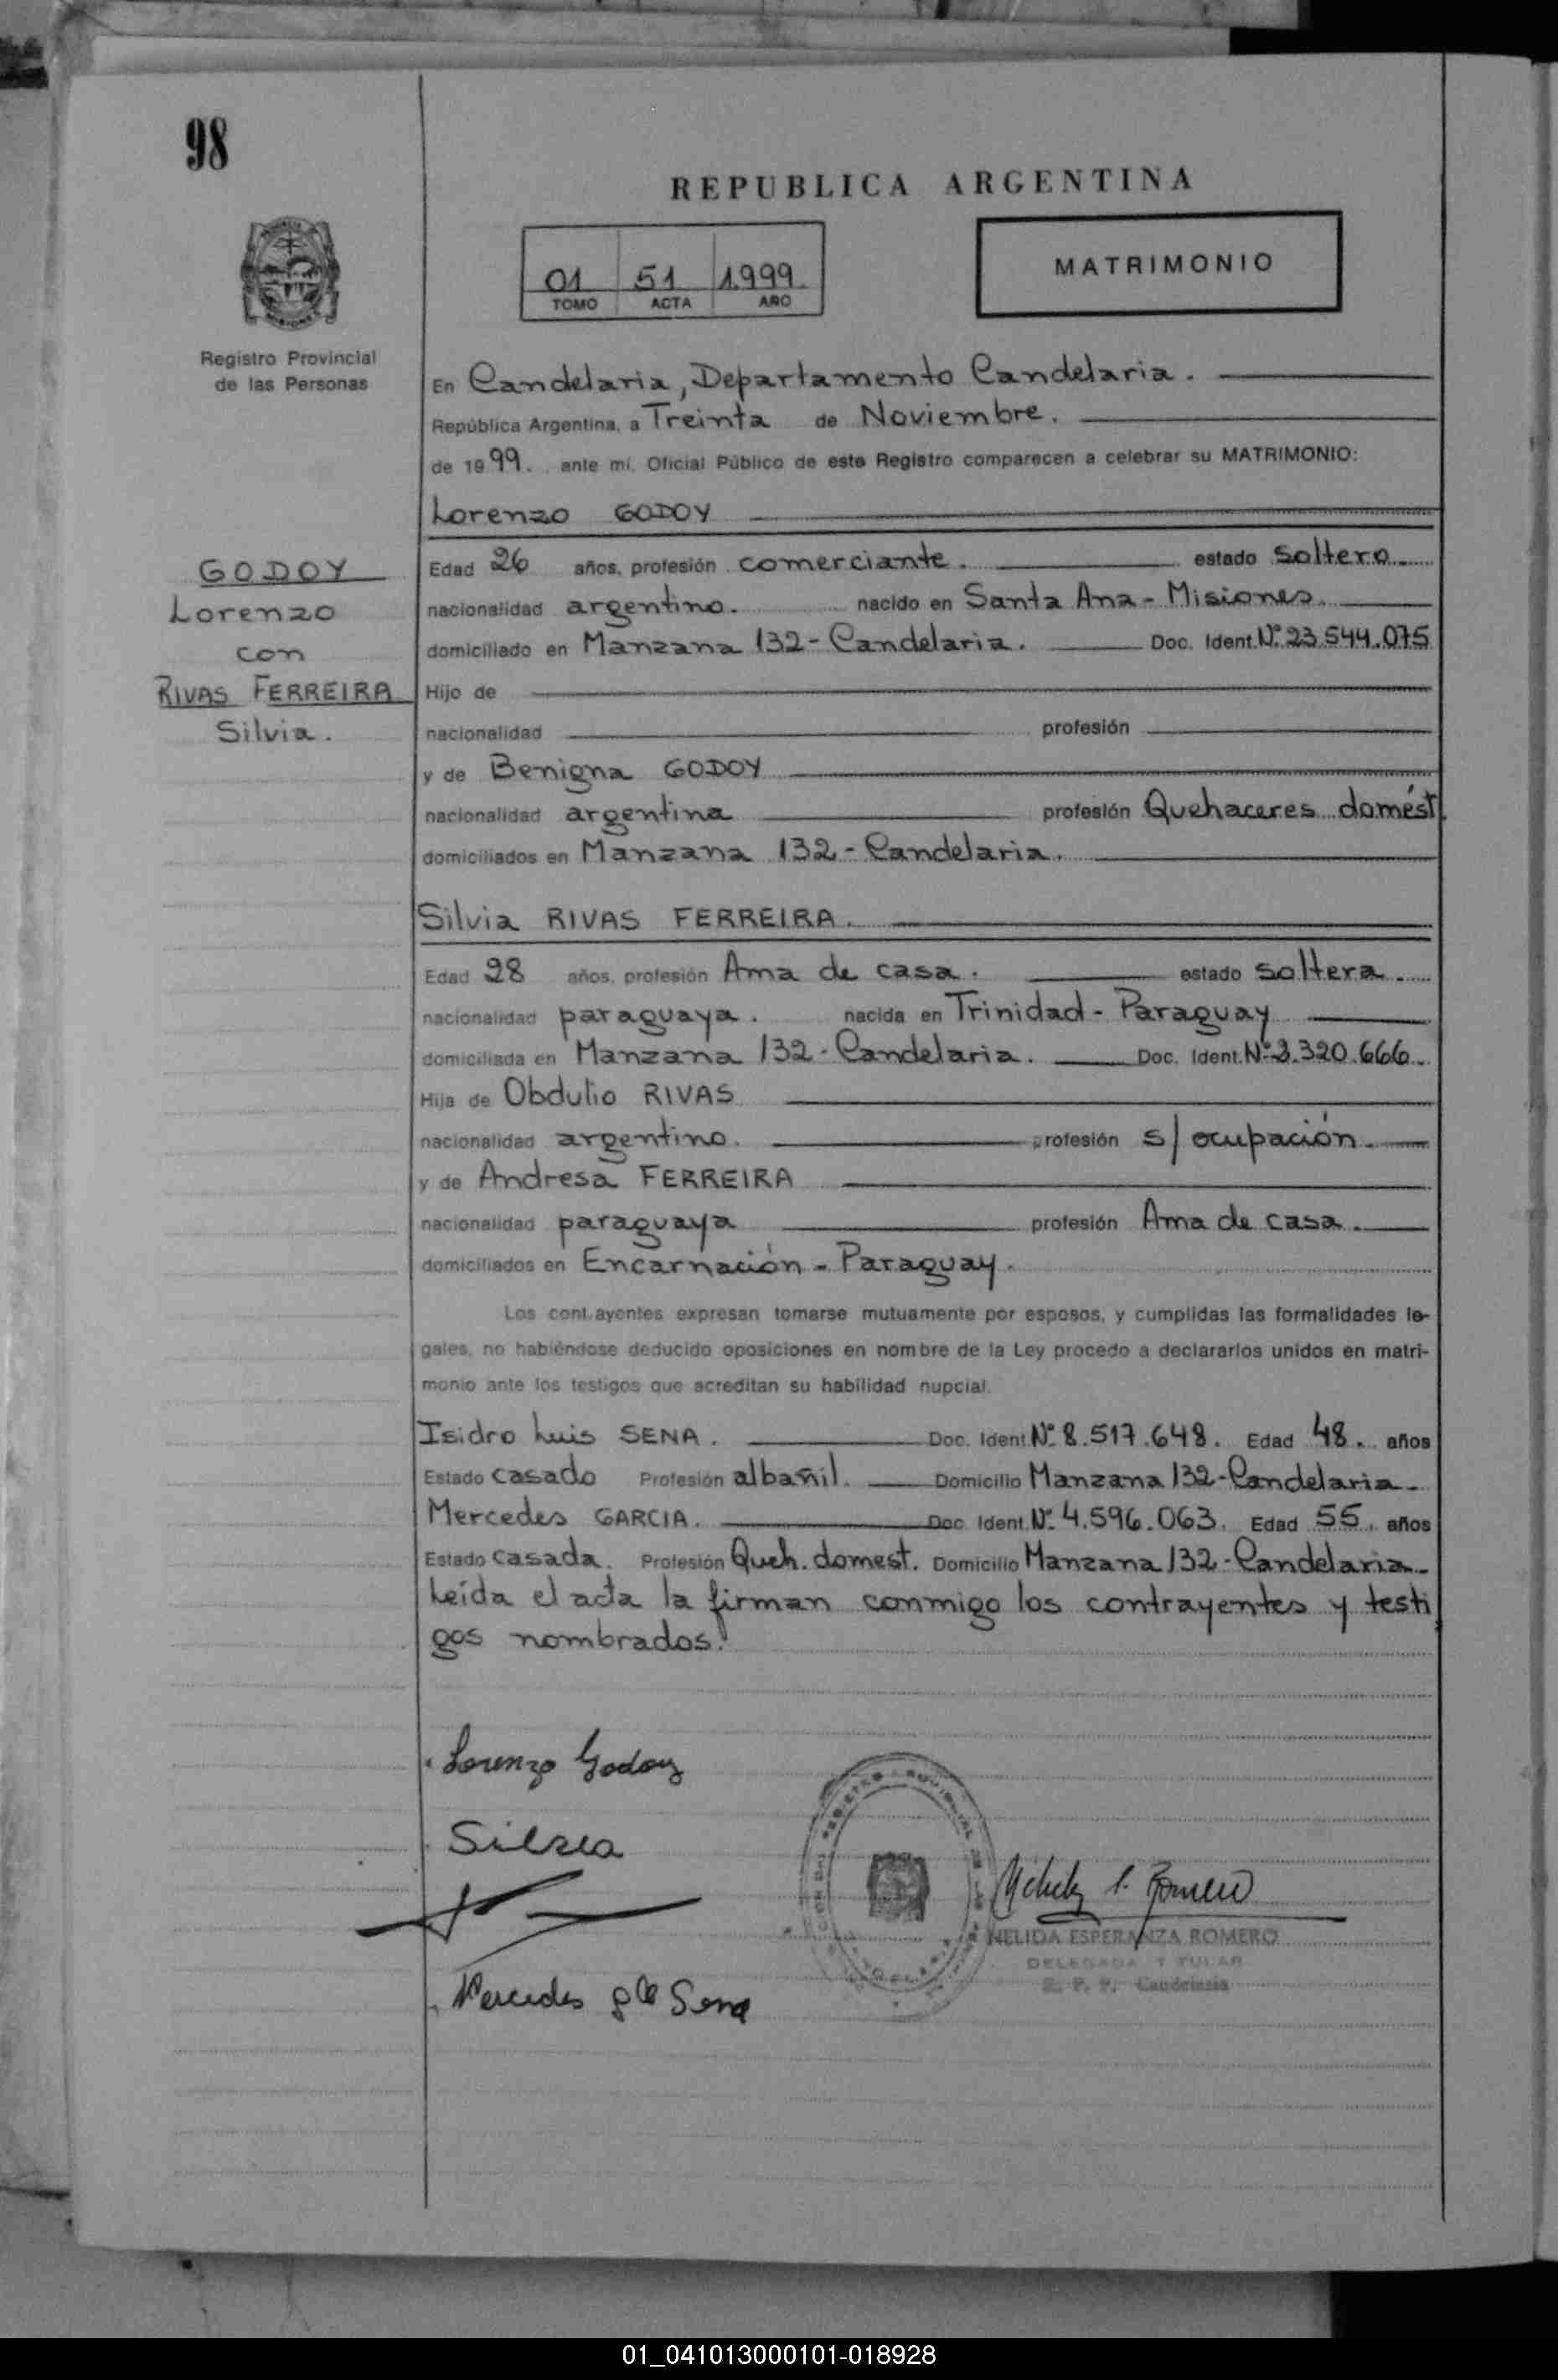 98
REPUBLICA ARGENTINA
01 51 1999
TOMO ACTA AÑO
MATRIMONIO
Registro Provincial
de las Personas
En Candelaria, Departamento Candelaria.
República Argentina, a Treinta de Noviembre.
de 1999. ante mí, Oficial Público de este Registro comparecen a celebrar su MATRIMONIO:
Lorenzo GODOY
GODOY
Lorenzo
con
RIVAS FERREIRA
Silvia.
Edad 26 años, profesión comerciante. estado soltero
nacionalidad argentino. nacido en Santa Ana - Misiones.
domiciliado en Manzana 132 - Candelaria. Doc. Ident. Nº 23.544.075
Hijo de
nacionalidad profesión
y de Benigna GODOY
nacionalidad argentina profesión Quehaceres domést.
domiciliados en Manzana 132 - Candelaria.
Silvia RIVAS FERREIRA.
Edad 28 años, profesión Ama de casa. estado soltera.
nacionalidad paraguaya. nacida en Trinidad - Paraguay
domiciliada en Manzana 132 - Candelaria. Doc. Ident. Nº 3.320.666
Hija de Obdulio RIVAS
nacionalidad argentino. profesión s/ ocupación.
y de Andresa FERREIRA
nacionalidad paraguaya profesión Ama de casa.
domiciliados en Encarnación - Paraguay.
Los contrayentes expresan tomarse mutuamente por esposos, y cumplidas las formalidades le-
gales, no habiéndose deducido oposiciones en nombre de la Ley procedo a declararlos unidos en matri-
monio ante los testigos que acreditan su habilidad nupcial.
Isidro Luis SENA. Doc. Ident. Nº 8.517.648. Edad 48. años
Estado casado Profesión albañil. Domicilio Manzana 132 - Candelaria.
Mercedes GARCIA. Doc. Ident. Nº 4.596.063. Edad 55. años
Estado casada. Profesión Queh. domest. Domicilio Manzana 132 - Candelaria.
Leída el acta la firman conmigo los contrayentes y testi
gos nombrados.
Lorenzo Godoy
Silvia
Mercedes Sena
Romero
NELIDA ESPERANZA ROMERO
DELEGADA TITULAR
R. P. P. Candelaria
01_041013000101-018928